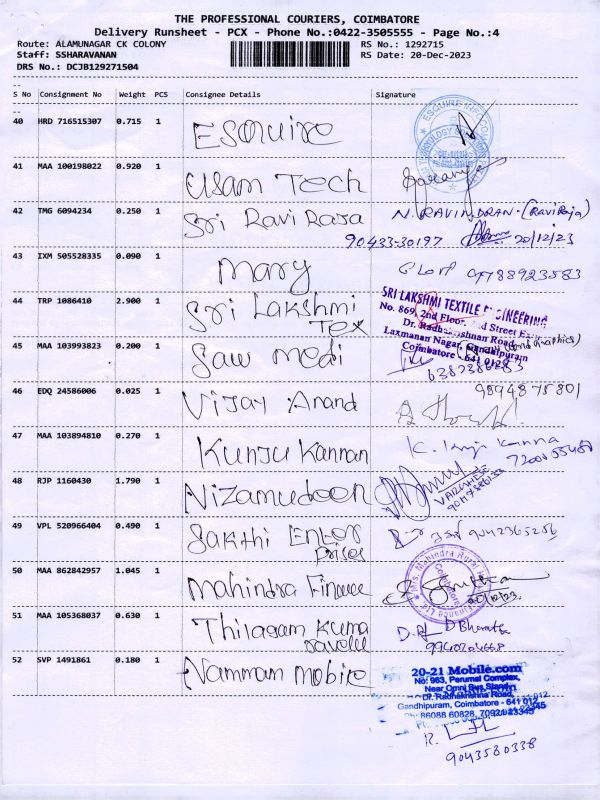 THE PROFESSIONAL COURIERS, COIMBATORE
Delivery Runsheet - PCX - Phone No.:0422-3505555 - Page No.:4
Route: ALAMUNAGAR CK COLONY
RS No.: 1292715
Staff: SSHARAVANAN
RS Date: 20-Dec-2023
DRS No.: DCJB129271504
S No Consignment No Weight PCS Consignee Details Signature
40 HRD 716515307 0.715 1 Esquire
41 MAA 100198022 0.920 1 Usam Tech
42 TMG 6094234 0.250 1 Sri Ravi Raja N. RAVINDRAN. (Ravi Raja)
90433-30197 20/12/23
43 IXM 505528335 0.090 1 Mary 9788923583
44 TRP 1086410 2.900 1 Sri Lakshmi Tex
SRI LAKSHMI TEXTILE ENGINEERING
No. 869, 2nd Floor, 2nd Street
Dr. Radhakrishnan Road,
Laxmanan Nagar, Gandhipuram
Coimbatore - 641 012
45 MAA 103993823 0.200 1 Saw medi
6382386283
46 EDQ 24586006 0.025 1 Vijay Anand 9894875801
47 MAA 103894810 0.270 1 Kunju Kannan K. Kunju Kanna
48 RJP 1160430 1.790 1 Nizamudeen
VARGHESE
49 VPL 520966404 0.490 1 Sakthi Enter
prises
50 MAA 862842957 1.045 1 Mahindra Finance
51 MAA 105368037 0.630 1 Thilagam Kuma
ravelu
D Bharath
9940204668
52 SVP 1491861 0.180 1 Nammam mobile
20-21 Mobile.com
No: 963, Perumal Complex,
Near Omni Bus Stand,
Dr. Radhakrishna Road,
Gandhipuram, Coimbatore - 641 012
Ph: 86088 60828, 70921 23345
9043580338